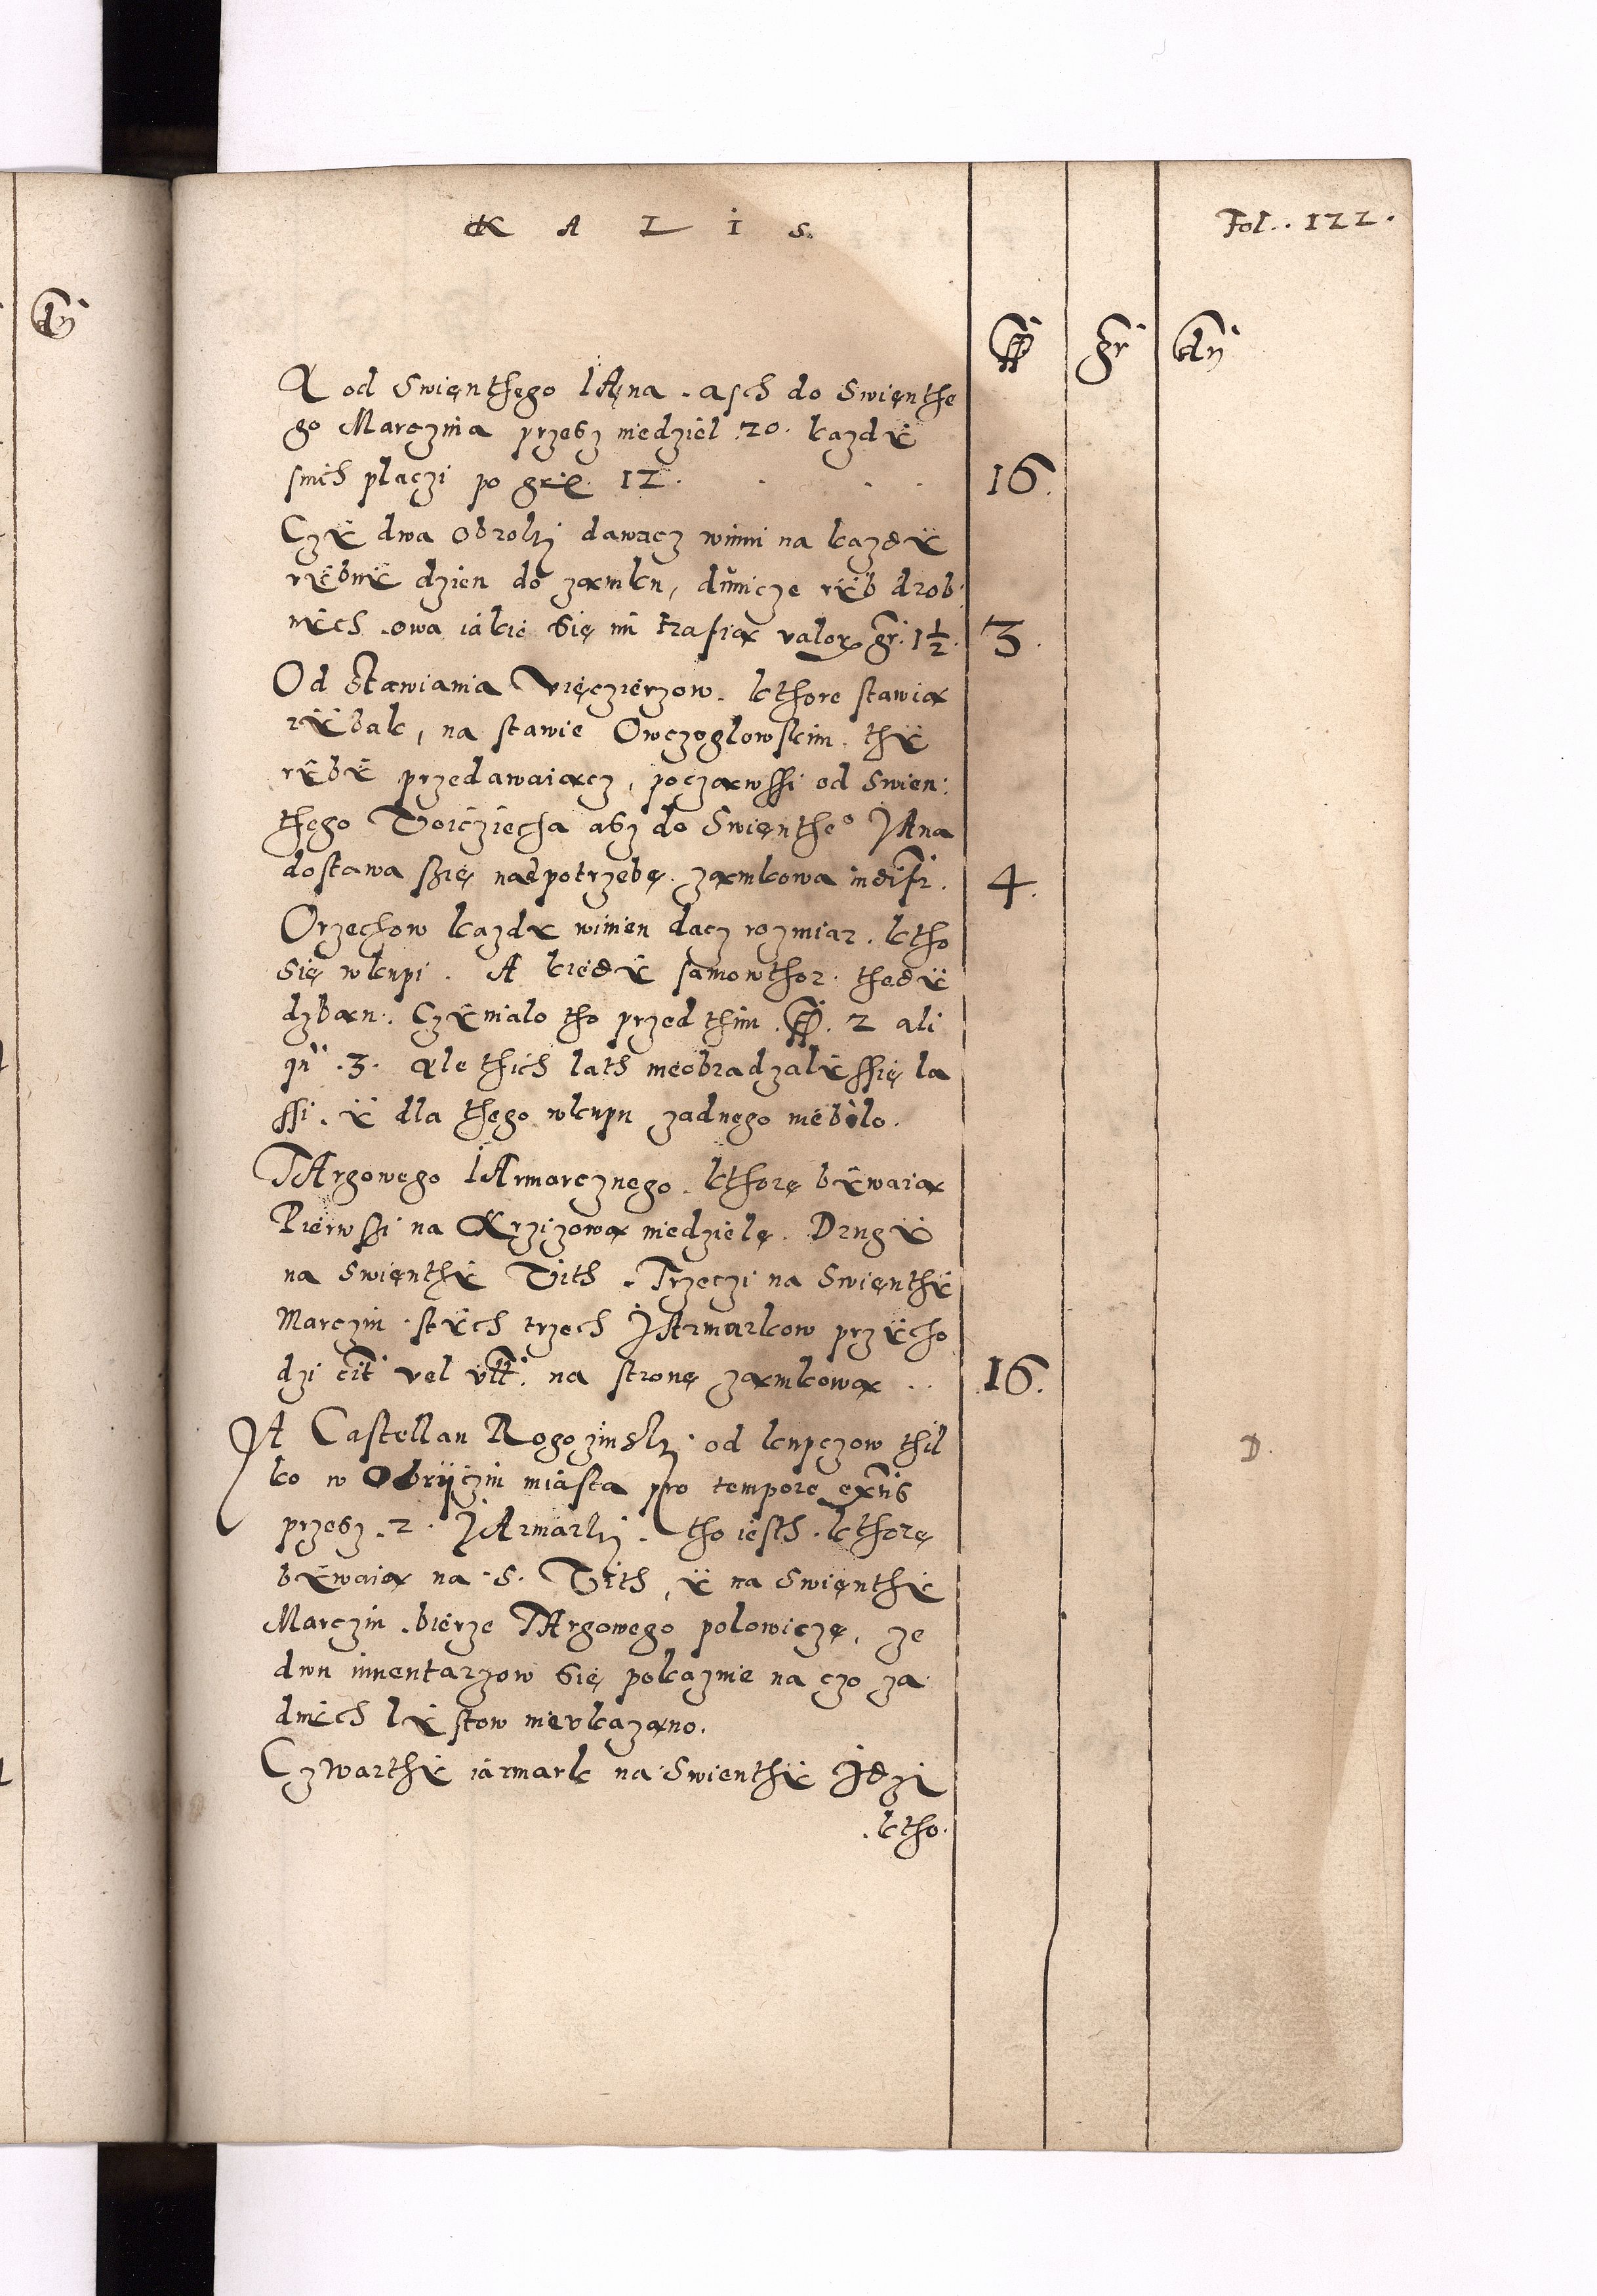 KALis. Fol. 122.
dn
ff gr dn
A od Swięnthego IAna. asch do Swięnthe
go Marczina przesz niedziel 20. kazdÿ
snich płaczi po gr 12. 16.
Czÿ dwa obrokj dawacz winni na kazdÿ
rÿbnÿ dzien do zamku, dunicze rÿb drob:
nÿch. owa iakie się im trafia valor gr. 1½. 3.
Od stawiania Vięczierzow. kthore stawia
rÿbak, na stawie Owczoglowskim. thÿ
rÿbÿ przedawaiącz, począwssi od Swien:
thego Voicziecha asz do Swięntheo JAna
dostawa szię nad potrzebę. zamkowa 4.
Orzechow kazdÿ winien dacz rozmiar. ktho
się wkupi. A kiedÿ samowthor. thedÿ
dzban. Czÿnialo tho przed thim. ff. 2 ali
qn. 3. ale thich lath nieobradzalÿ ssię la
ssi. ÿ dla thego wkupu zadnego niebÿlo.
TArgowego IArmarcznego. kthorę bÿwaią
Pierwszi na Krziżową niedzielę. Drugÿ
na Swięnthÿ Vith. Trzeczi na Swięnthÿ
Marczin. stÿch trzech JArmarkow przÿcho
dzi cit vel vltr. na stronę zamkową .. 16.
JA Castellan Rogozinskj. od kupczow thil
ko w Obrÿczin miasta pro tempore exnis
przesz. 2. JArmarkj. tho iesth. kthorę
bÿwaią na S. Vith, ÿ na Swięnthÿ
Marczin. bierze TArgowego polowiczę, ze
dwu inuentarzow się pokaznie na czo za
dnÿch lÿstow nievkazano.
Czwarthÿ iarmark na Swienthÿ Jdzi
.ktho.
D.